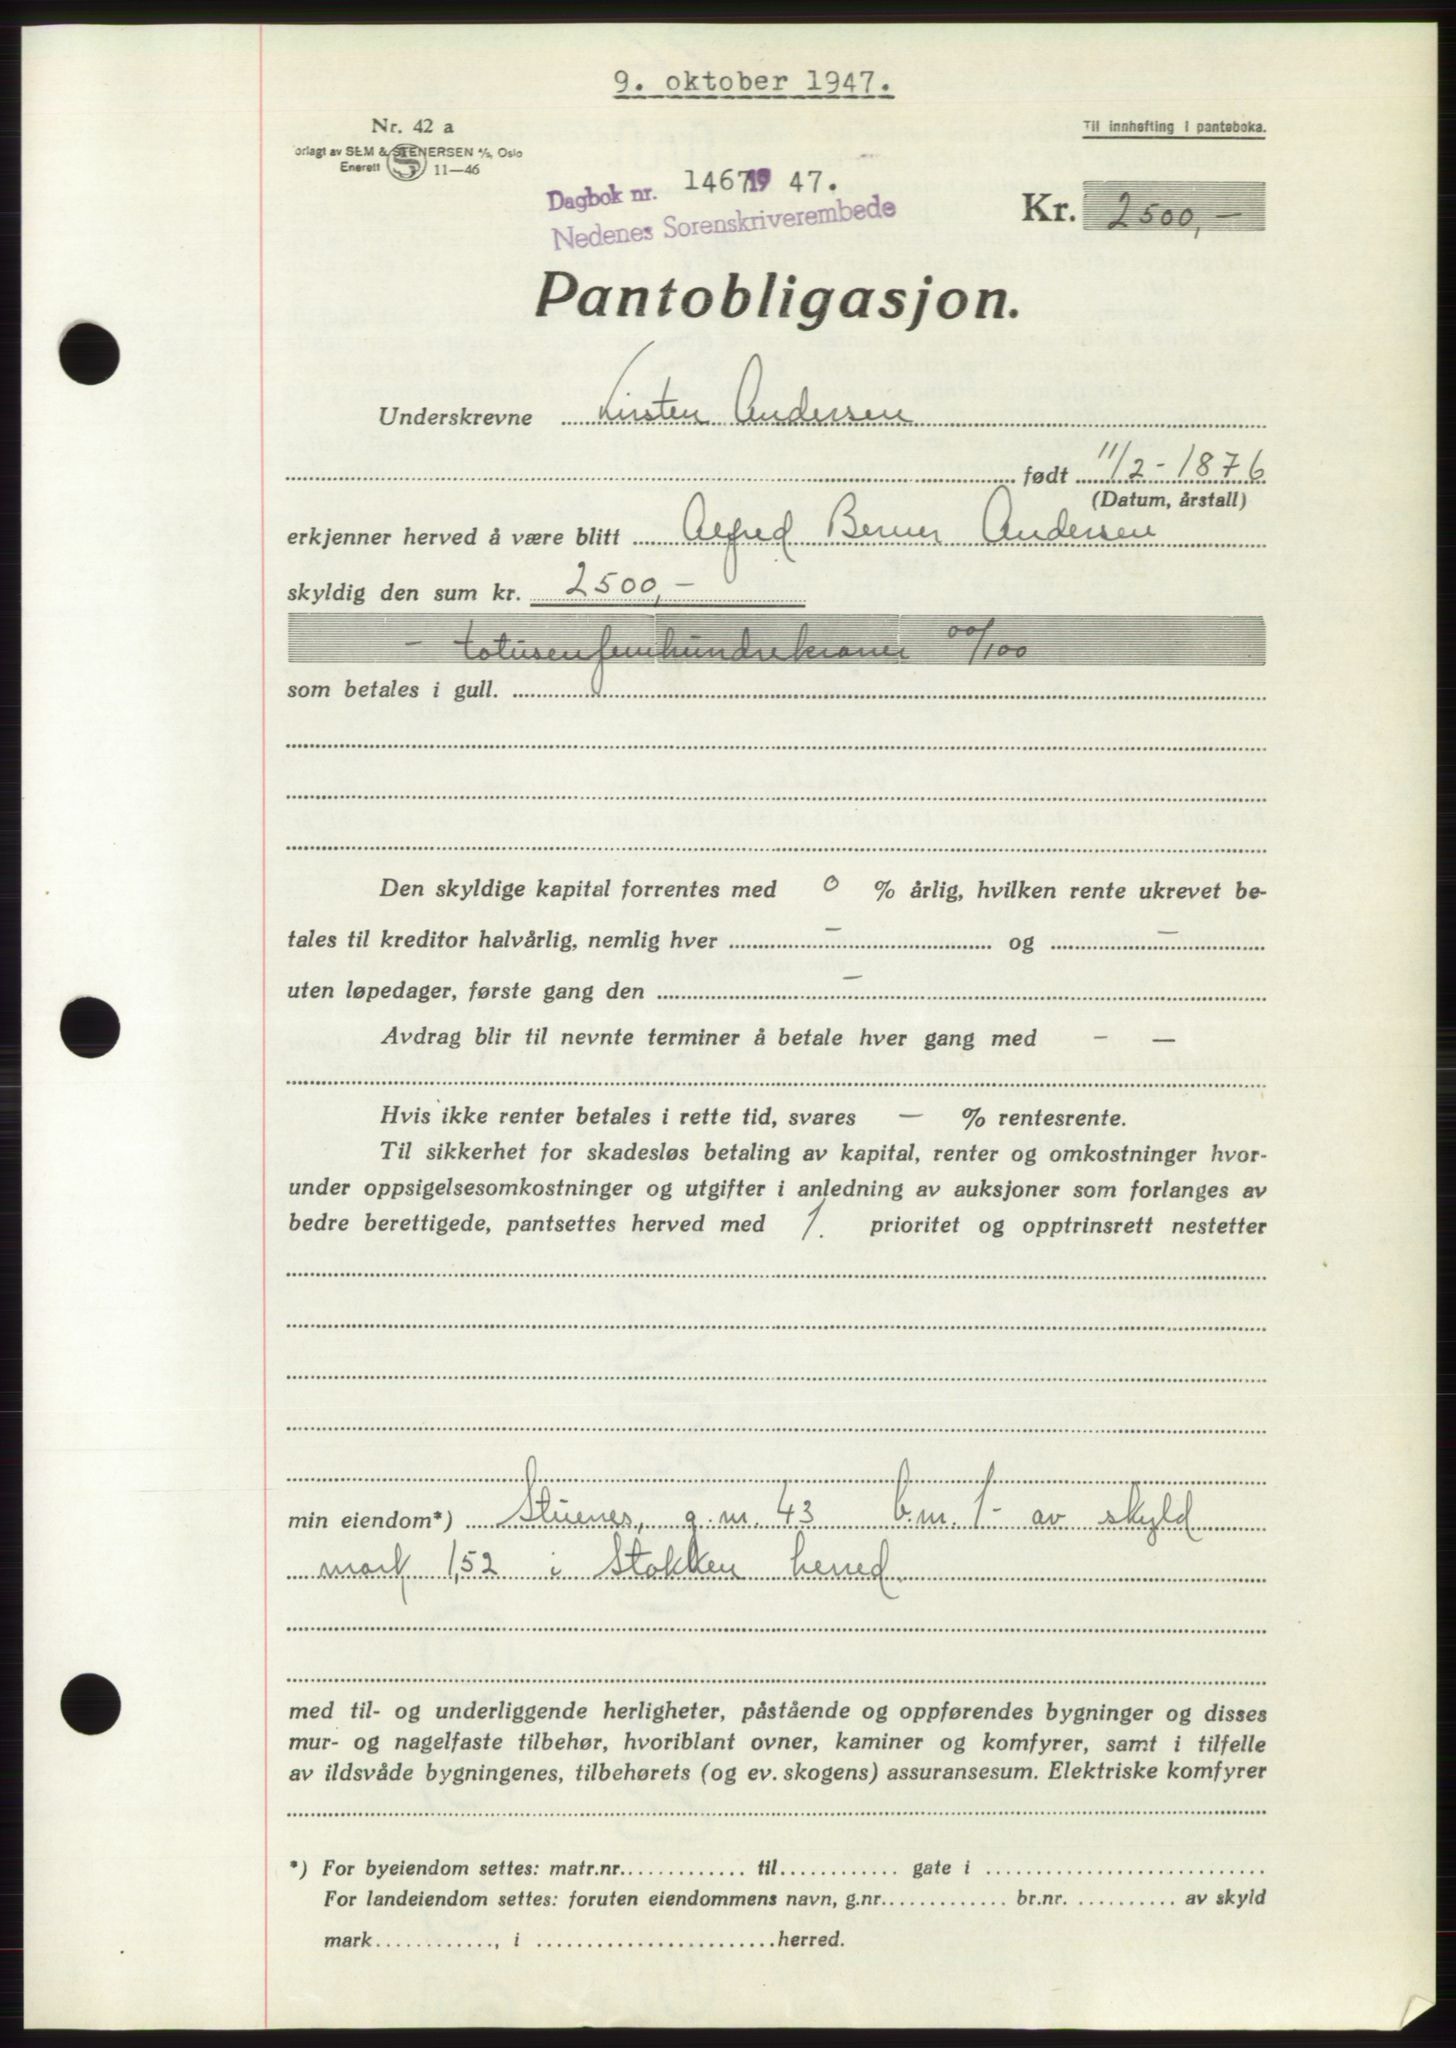 9. oktober 1947.
Nr. 42 a
Til innhefting i panteboka.
orlagt av SEM & STENERSEN A/S, Oslo
Enerett S 11—46
Dagbok nr. 1467 19 47.
Nedenes Sorenskriverembede
Kr. 2500,-
Pantobligasjon.
Underskrevne Kirsten Andersen
født 11/2-1876
(Datum, årstall)
erkjenner herved å være blitt Alfred Berner Andersen
skyldig den sum kr. 2500,-
- totusenfemhundrekroner 00/100
som betales i gull.
Den skyldige kapital forrentes med 0 % årlig, hvilken rente ukrevet be-
tales til kreditor halvårlig, nemlig hver — og —
uten løpedager, første gang den —
Avdrag blir til nevnte terminer å betale hver gang med - —
Hvis ikke renter betales i rette tid, svares — % rentesrente.
Til sikkerhet for skadesløs betaling av kapital, renter og omkostninger hvor-
under oppsigelsesomkostninger og utgifter i anledning av auksjoner som forlanges av
bedre berettigede, pantsettes herved med 1. prioritet og opptrinsrett nestetter
min eiendom*) Stuenes, g.nr. 43 b.nr. 1 - av skyld
mark 1,52 i Stokken herred
med til- og underliggende herligheter, påstående og oppførendes bygninger og disses
mur- og nagelfaste tilbehør, hvoriblant ovner, kaminer og komfyrer, samt i tilfelle
av ildsvåde bygningenes, tilbehørets (og ev. skogens) assuransesum. Elektriske komfyrer
*) For byeiendom settes: matr.nr. til gate i
For landeiendom settes: foruten eiendommens navn, g.nr. br.nr. av skyld
mark , i herred.